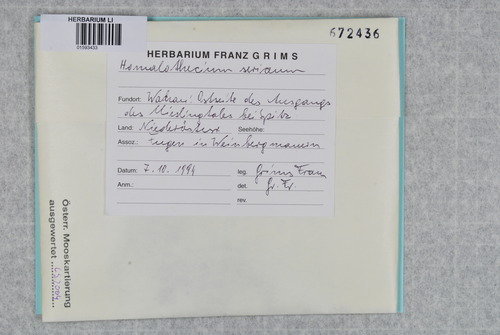 HERBARIUM LI
01593433
672436
HERBARIUM FRANZ GRIMS
Homalothecium sericeum
Fundort: Wachau: Ostseite des Ausgangs
des Mieslingtales bei Spitz
Land: Niederösterr. Seehöhe:
Assoz.: Fugen in Weinbergmauern
Datum: 7. 10. 1994 leg. Grims Franz
Anm.: det. Gr. Fr.
rev.
Österr. Mooskartierung
ausgewertet